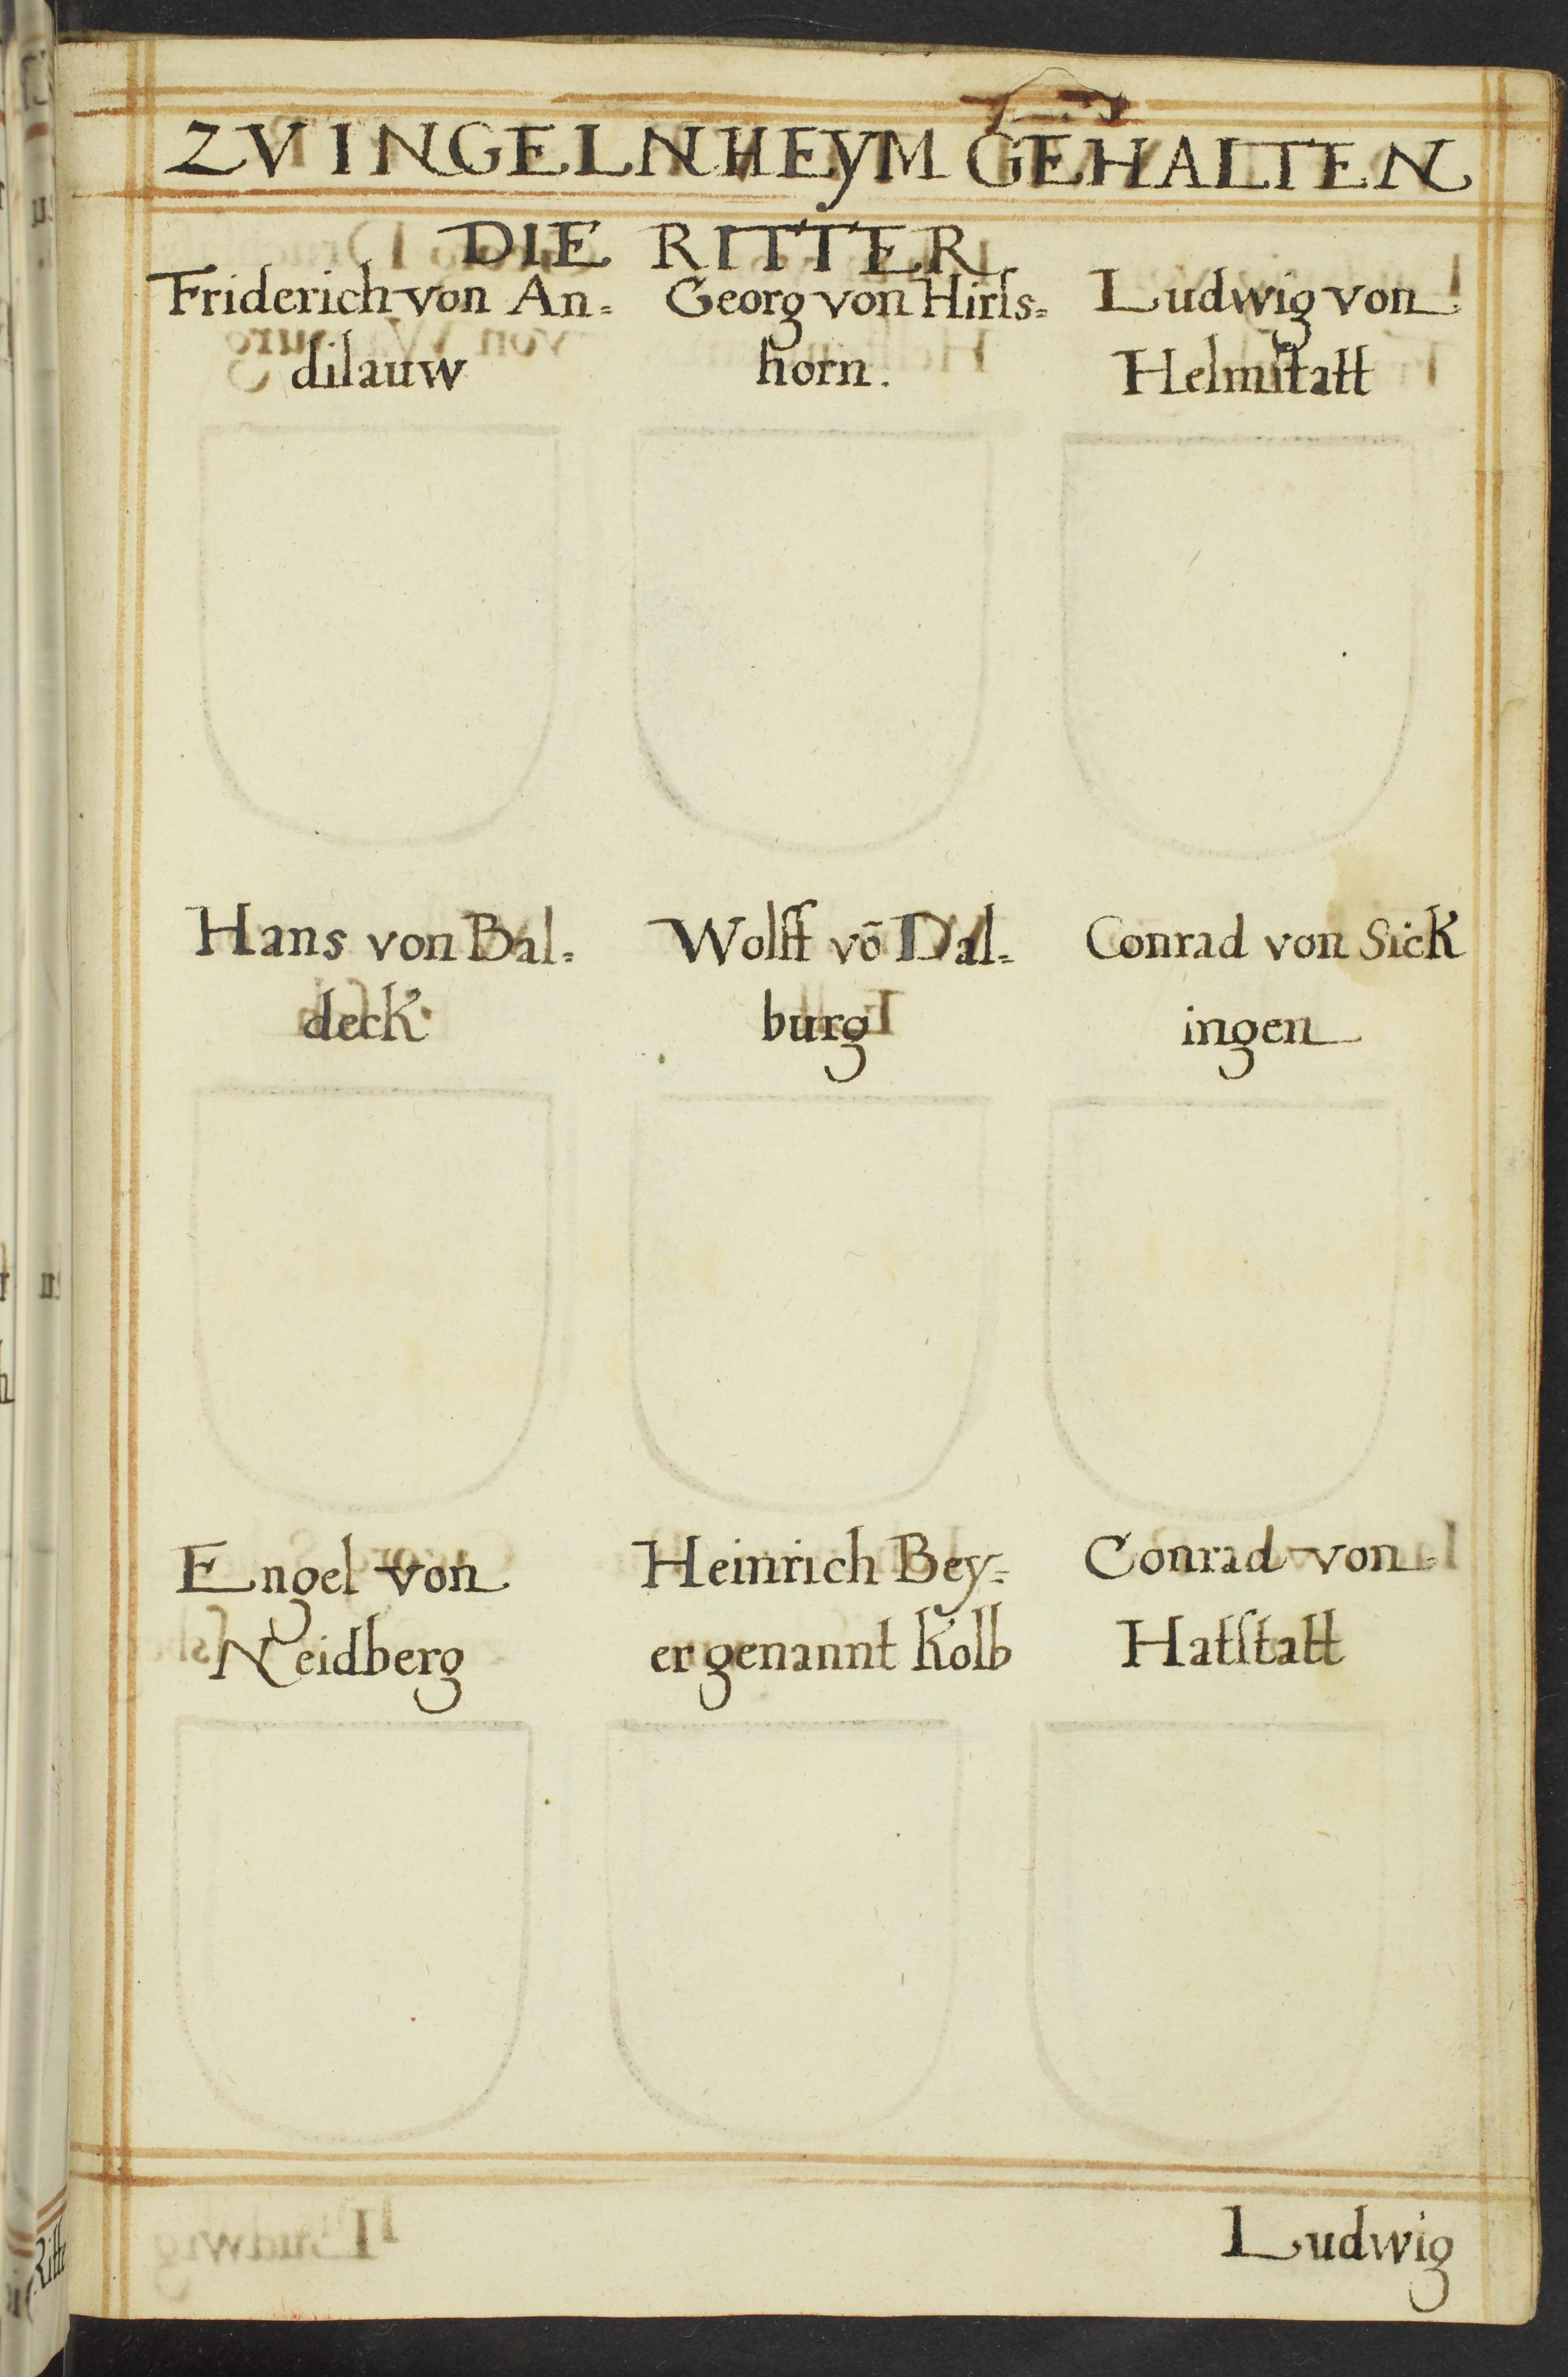 ZV INGELNHEyM GEHALTEN
DIE RITTER
Friderich von An=
dilauw
Georg von Hirſs=
horn.
Ludwig von
Helmſtatt
Hans von Bal=
deck
Wolff võ Dal=
burg
Conrad von Sick
ingen
Engel von
Neidberg
Heinrich Bey=
er genannt Kolb
Conrad von
Hatſtatt
Ludwig